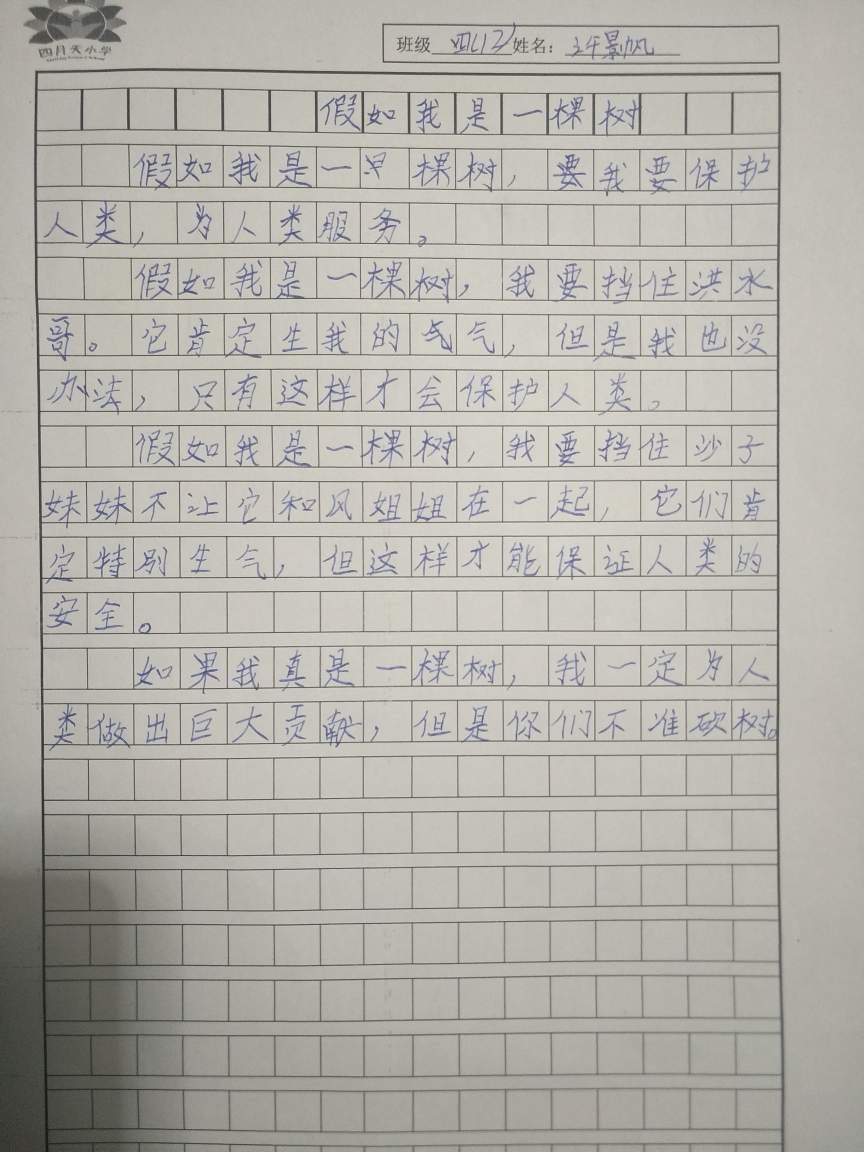 四月天小学
班级 四(2) 姓名: 许景帆
假如我是一棵树
假如我是一早棵树，要我要保护
人类，为人类服务。
假如我是一棵树，我要挡住洪水
哥。它肯定生我的气气，但是我也没
办法，只有这样才会保护人类。
假如我是一棵树，我要挡住沙子
妹妹不让它和风姐姐在一起，它们肯
定特别生气，但这样才能保证人类的
安全。
如果我真是一棵树，我一定为人
类做出巨大贡献，但是你们不准砍树。